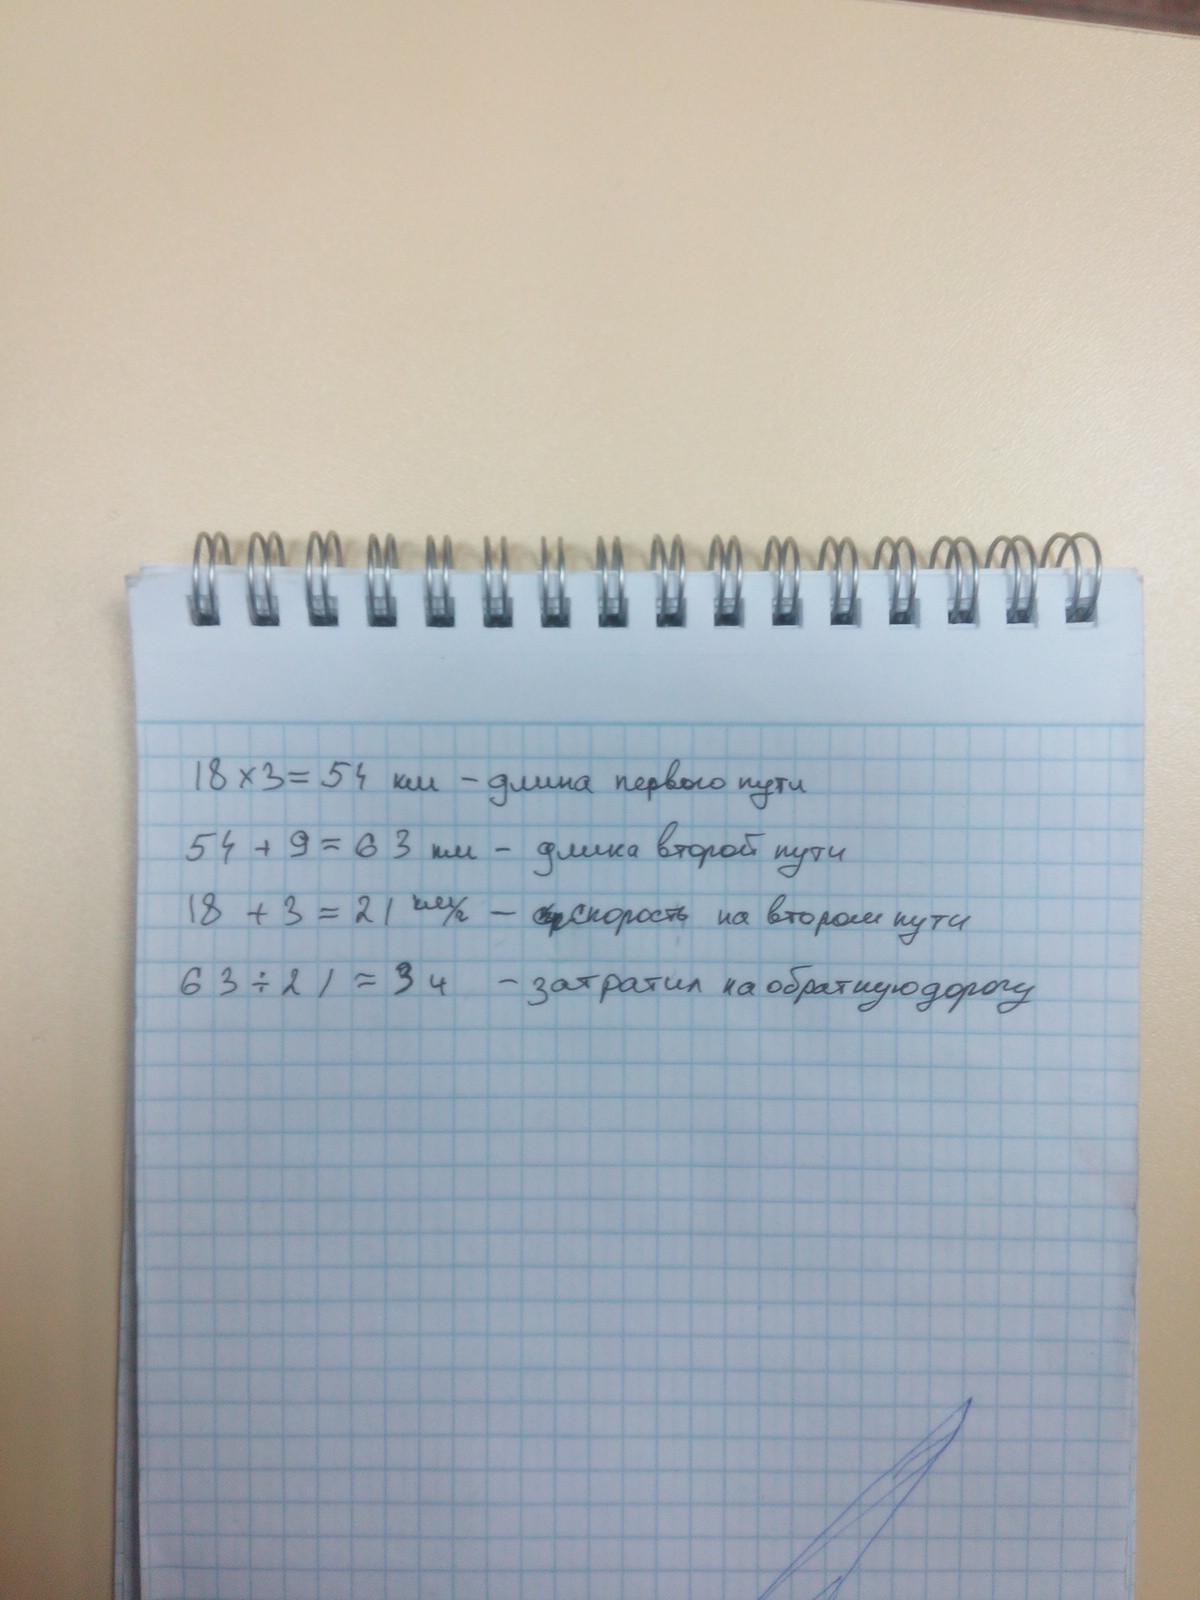 18 × 3 = 54 км – длина первого пути
54 + 9 = 63 км – длина второй пути
18 + 3 = 21 км/ч – скорость на втором пути
63 ÷ 21 = 3 ч – затратил на обратную дорогу